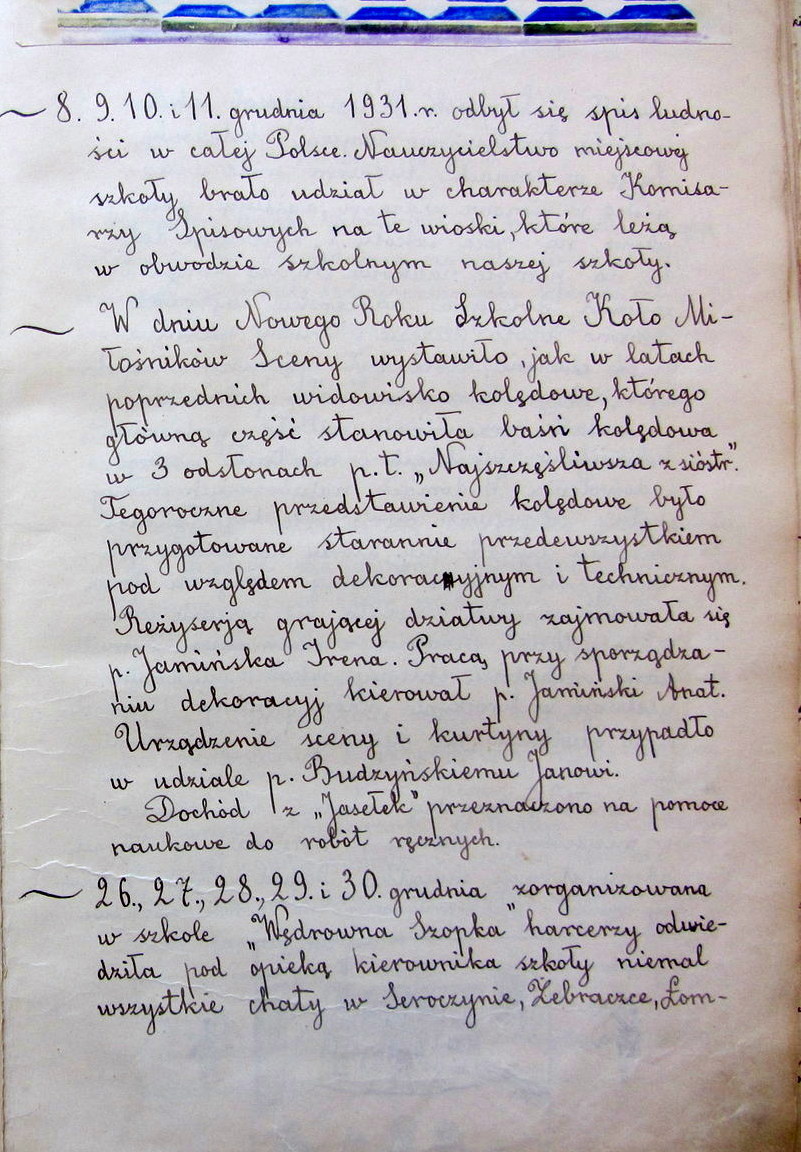 8. 9. 10. i 11. grudnia 1931. r. odbył się spis ludno-
ści w całej Polsce. Nauczycielstwo miejscowej
szkoły brało udział w charakterze Komisa-
rzy Spisowych na te wioski, które leżą
w obwodzie szkolnym naszej szkoły.
W dniu Nowego Roku Szkolne Koło Mi-
łośników Sceny wystawiło, jak w latach
poprzednich widowisko kolędowe, którego
główną część stanowiła baśń kolędowa
w 3 odsłonach p.t. „Najszczęśliwsza z sióstr”.
Tegoroczne przedstawienie kolędowe było
przygotowane starannie przedewszystkiem
pod względem dekoracyjnym i technicznym.
Reżyserją grającej dziatwy zajmowała się
p. Jamińska Irena. Pracą przy sporządza-
niu dekoracyj kierował p. Jamiński Anat.
Urządzenie sceny i kurtyny przypadło
w udziale p. Budzyńskiemu Janowi.
Dochód z „Jasełek” przeznaczono na pomoce
naukowe do robót ręcznych.
26., 27., 28., 29. i 30. grudnia zorganizowana
w szkole „Wędrowna Szopka” harcerzy odwie-
dziła pod opieką kierownika szkoły niemal
wszystkie chaty w Seroczynie, Żebraczce, Łom-